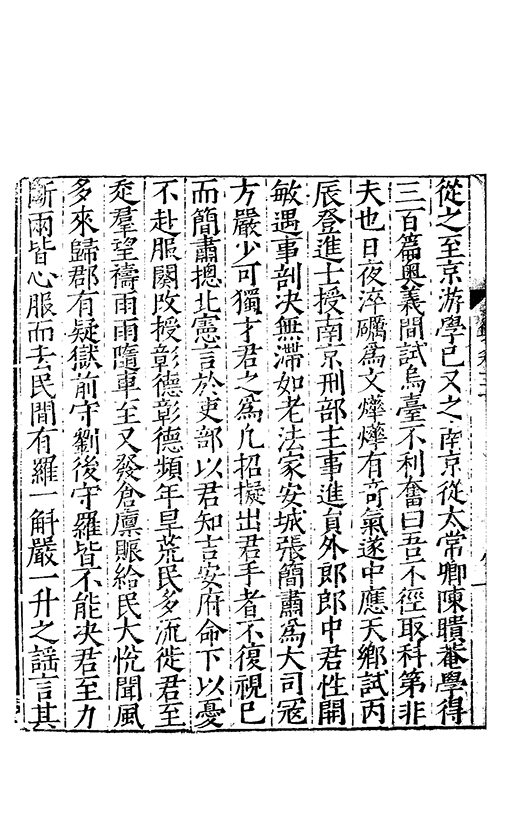 從之至京游學已又之南京從太常卿陳矌菴學得
三百篇奧義間試烏臺不利奮曰吾不徑取科第非
夫也日夜淬礪為文燁燁有奇氣遂中應天鄉試丙
辰登進士授南京刑部主事進員外郎郎中君性開
敏遇事剖決無滯如老法家安城張簡肅為大司寇
方嚴少可獨才君之為凡招擬出君手者不復視已
而簡肅摠北憲言於吏部以君知吉安府命下以憂
不赴服闋改授彰德彰德頻年旱荒民多流徙君至
走羣望禱雨雨隨車至又發倉廩賑給民大悅聞風
多來歸郡有疑獄前守劉後守羅皆不能决君至力
斷兩皆心服而去民間有羅一斛嚴一升之謠言其